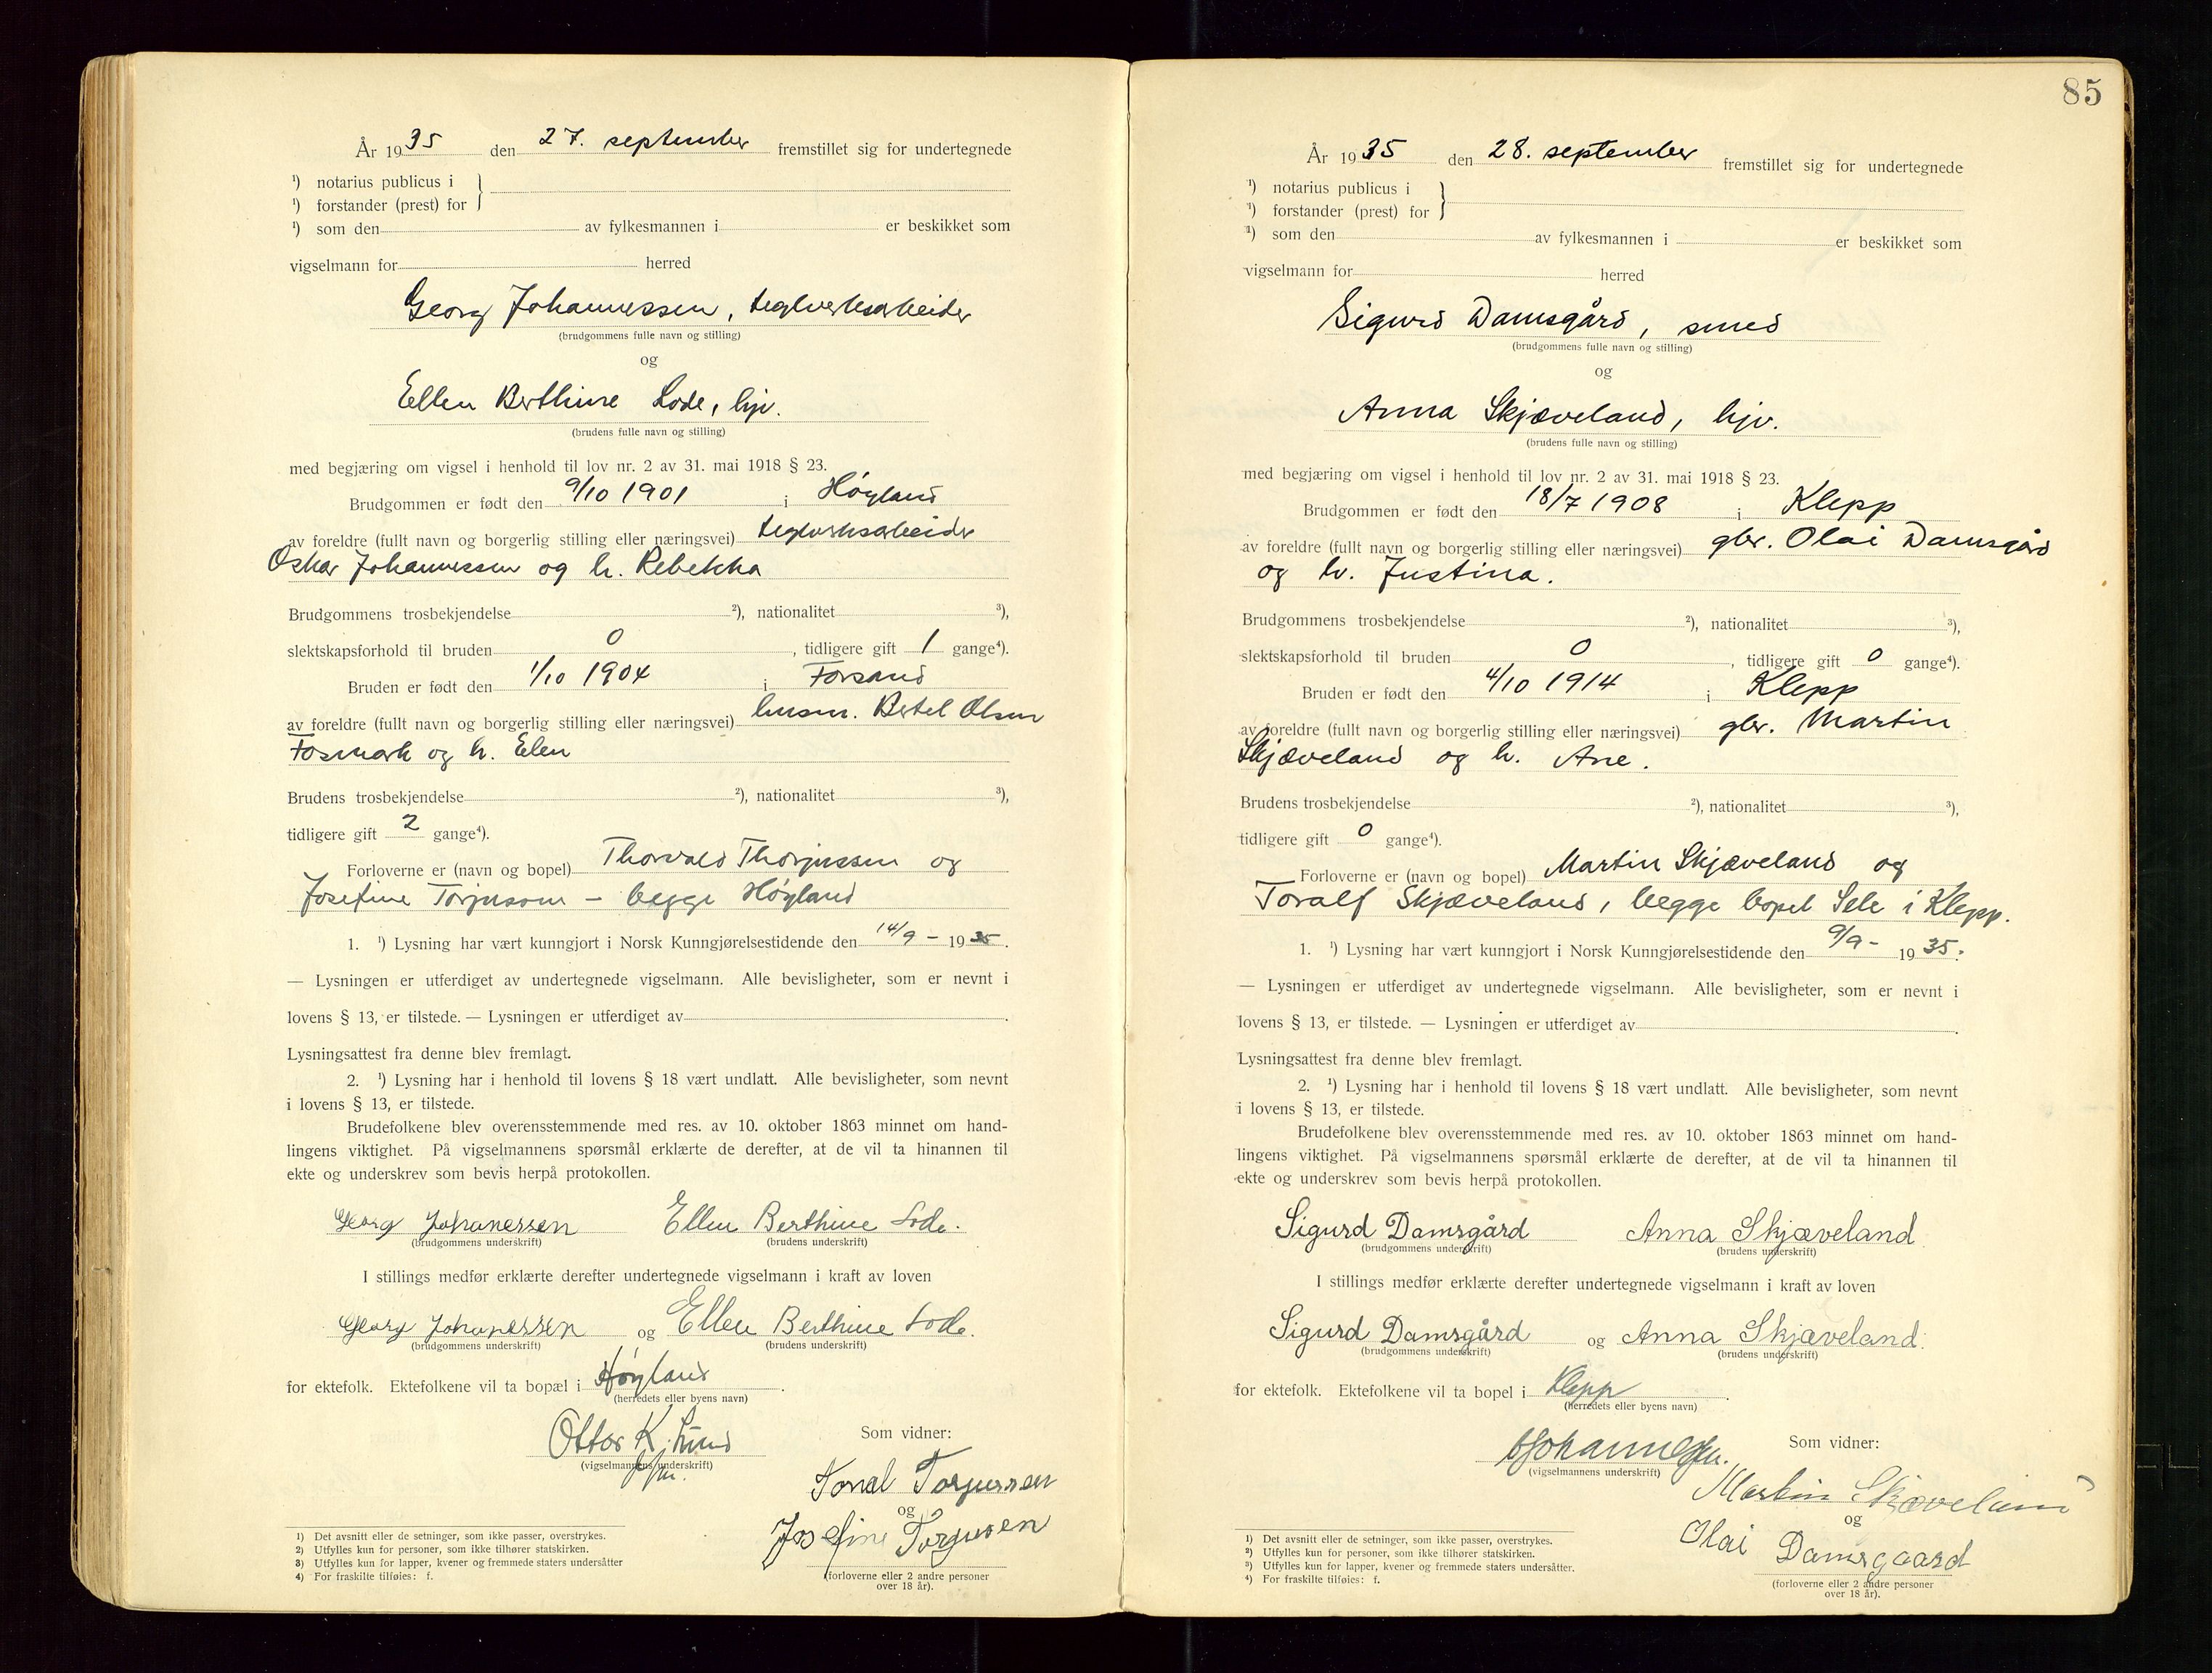 År 1935 den 27. september fremstillet sig for undertegnede
¹) notarius publicus i
¹) forstander (prest) for
¹) som den av fylkesmannen i er beskikket som
vigselmann for herred
Georg Johannessen, teglverksarbeider
(brudgommens fulle navn og stilling)
og
Ellen Berthine Lode, hjv.
(brudens fulle navn og stilling)
med begjæring om vigsel i henhold til lov nr. 2 av 31. mai 1918 § 23.
Brudgommen er født den 9/10 1901 i Høyland
av foreldre (fullt navn og borgerlig stilling eller næringsvei) teglverksarbeider
Oskar Johannessen og h. Rebekka
Brudgommens trosbekjendelse ²), nationalitet ³),
slektskapsforhold til bruden 0, tidligere gift 1 gange⁴).
Bruden er født den 1/10 1904 i Forsand
av foreldre (fullt navn og borgerlig stilling eller næringsvei) husm. Bertel Olsen
Fosmark og h. Elen
Brudens trosbekjendelse ²), nationalitet ³),
tidligere gift 2 gange⁴).
Forloverne er (navn og bopel) Thorvald Thorjussen og
Josefine Torjusen – begge Høyland
1. ¹) Lysning har vært kunngjort i Norsk Kunngjørelsestidende den 14/9 – 1935.
— Lysningen er utferdiget av undertegnede vigselmann. Alle bevisligheter, som er nevnt i
lovens § 13, er tilstede. — Lysningen er utferdiget av .
Lysningsattest fra denne blev fremlagt.
2. ¹) Lysning har i henhold til lovens § 18 vært undlatt. Alle bevisligheter, som nevnt
i lovens § 13, er tilstede.
Brudefolkene blev overensstemmende med res. av 10. oktober 1863 minnet om hand-
lingens viktighet. På vigselmannens spørsmål erklærte de derefter, at de vil ta hinannen til
ekte og underskrev som bevis herpå protokollen.
Georg Johanessen Ellen Berthine Lode.
(brudgommens underskrift) (brudens underskrift)
I stillings medfør erklærte derefter undertegnede vigselmann i kraft av loven
Georg Johanessen og Ellen Berthine Lode.
(brudgommens underskrift) (brudens underskrift)
for ektefolk. Ektefolkene vil ta bopæl i Høyland.
(herredets eller byens navn)
Ottar K. Lund
(vigselmannens underskrift)
Som vidner:
Torjussen
og
Josefine Torjusen
(forloverne eller 2 andre personer
over 18 år).
1) Det avsnitt eller de setninger, som ikke passer, overstrykes.
2) Utfylles kun for personer, som ikke tilhører statskirken.
3) Utfylles kun for lapper, kvener og fremmede staters undersåtter
4) For fraskilte tilføies: f.
85
År 1935 den 28. september fremstillet sig for undertegnede
¹) notarius publicus i
¹) forstander (prest) for
¹) som den av fylkesmannen i er beskikket som
vigselmann for herred
Sigurd Damsgård, smed
(brudgommens fulle navn og stilling)
og
Anna Skjæveland, hjv.
(brudens fulle navn og stilling)
med begjæring om vigsel i henhold til lov nr. 2 av 31. mai 1918 § 23.
Brudgommen er født den 18/7 1908 i Klepp
av foreldre (fullt navn og borgerlig stilling eller næringsvei) gbr. Olai Damsgård
og h. Justina.
Brudgommens trosbekjendelse ²), nationalitet ³),
slektskapsforhold til bruden 0, tidligere gift 0 gange⁴).
Bruden er født den 4/10 1914 i Klepp
av foreldre (fullt navn og borgerlig stilling eller næringsvei) gbr. Martin
Skjæveland og h. Ane.
Brudens trosbekjendelse ²), nationalitet ³),
tidligere gift 0 gange⁴).
Forloverne er (navn og bopel) Martin Skjæveland og
Toralf Skjæveland, begge bopel Sele i Klepp.
1. ¹) Lysning har vært kunngjort i Norsk Kunngjørelsestidende den 9/9 – 1935.
— Lysningen er utferdiget av undertegnede vigselmann. Alle bevisligheter, som er nevnt i
lovens § 13, er tilstede. — Lysningen er utferdiget av .
Lysningsattest fra denne blev fremlagt.
2. ¹) Lysning har i henhold til lovens § 18 vært undlatt. Alle bevisligheter, som nevnt
i lovens § 13, er tilstede.
Brudefolkene blev overensstemmende med res. av 10. oktober 1863 minnet om hand-
lingens viktighet. På vigselmannens spørsmål erklærte de derefter, at de vil ta hinannen til
ekte og underskrev som bevis herpå protokollen.
Sigurd Damsgård Anna Skjæveland
(brudgommens underskrift) (brudens underskrift)
I stillings medfør erklærte derefter undertegnede vigselmann i kraft av loven
Sigurd Damsgård og Anna Skjæveland.
(brudgommens underskrift) (brudens underskrift)
for ektefolk. Ektefolkene vil ta bopel i Klepp.
(herredets eller byens navn)
(vigselmannens underskrift)
Som vidner:
Martin Skjæveland
og
Olai Damsgaard
(forloverne eller 2 andre personer
over 18 år).
1) Det avsnitt eller de setninger, som ikke passer, overstrykes.
2) Utfylles kun for personer, som ikke tilhører statskirken.
3) Utfylles kun for lapper, kvener og fremmede staters undersåtter.
4) For fraskilte tilføies: f.